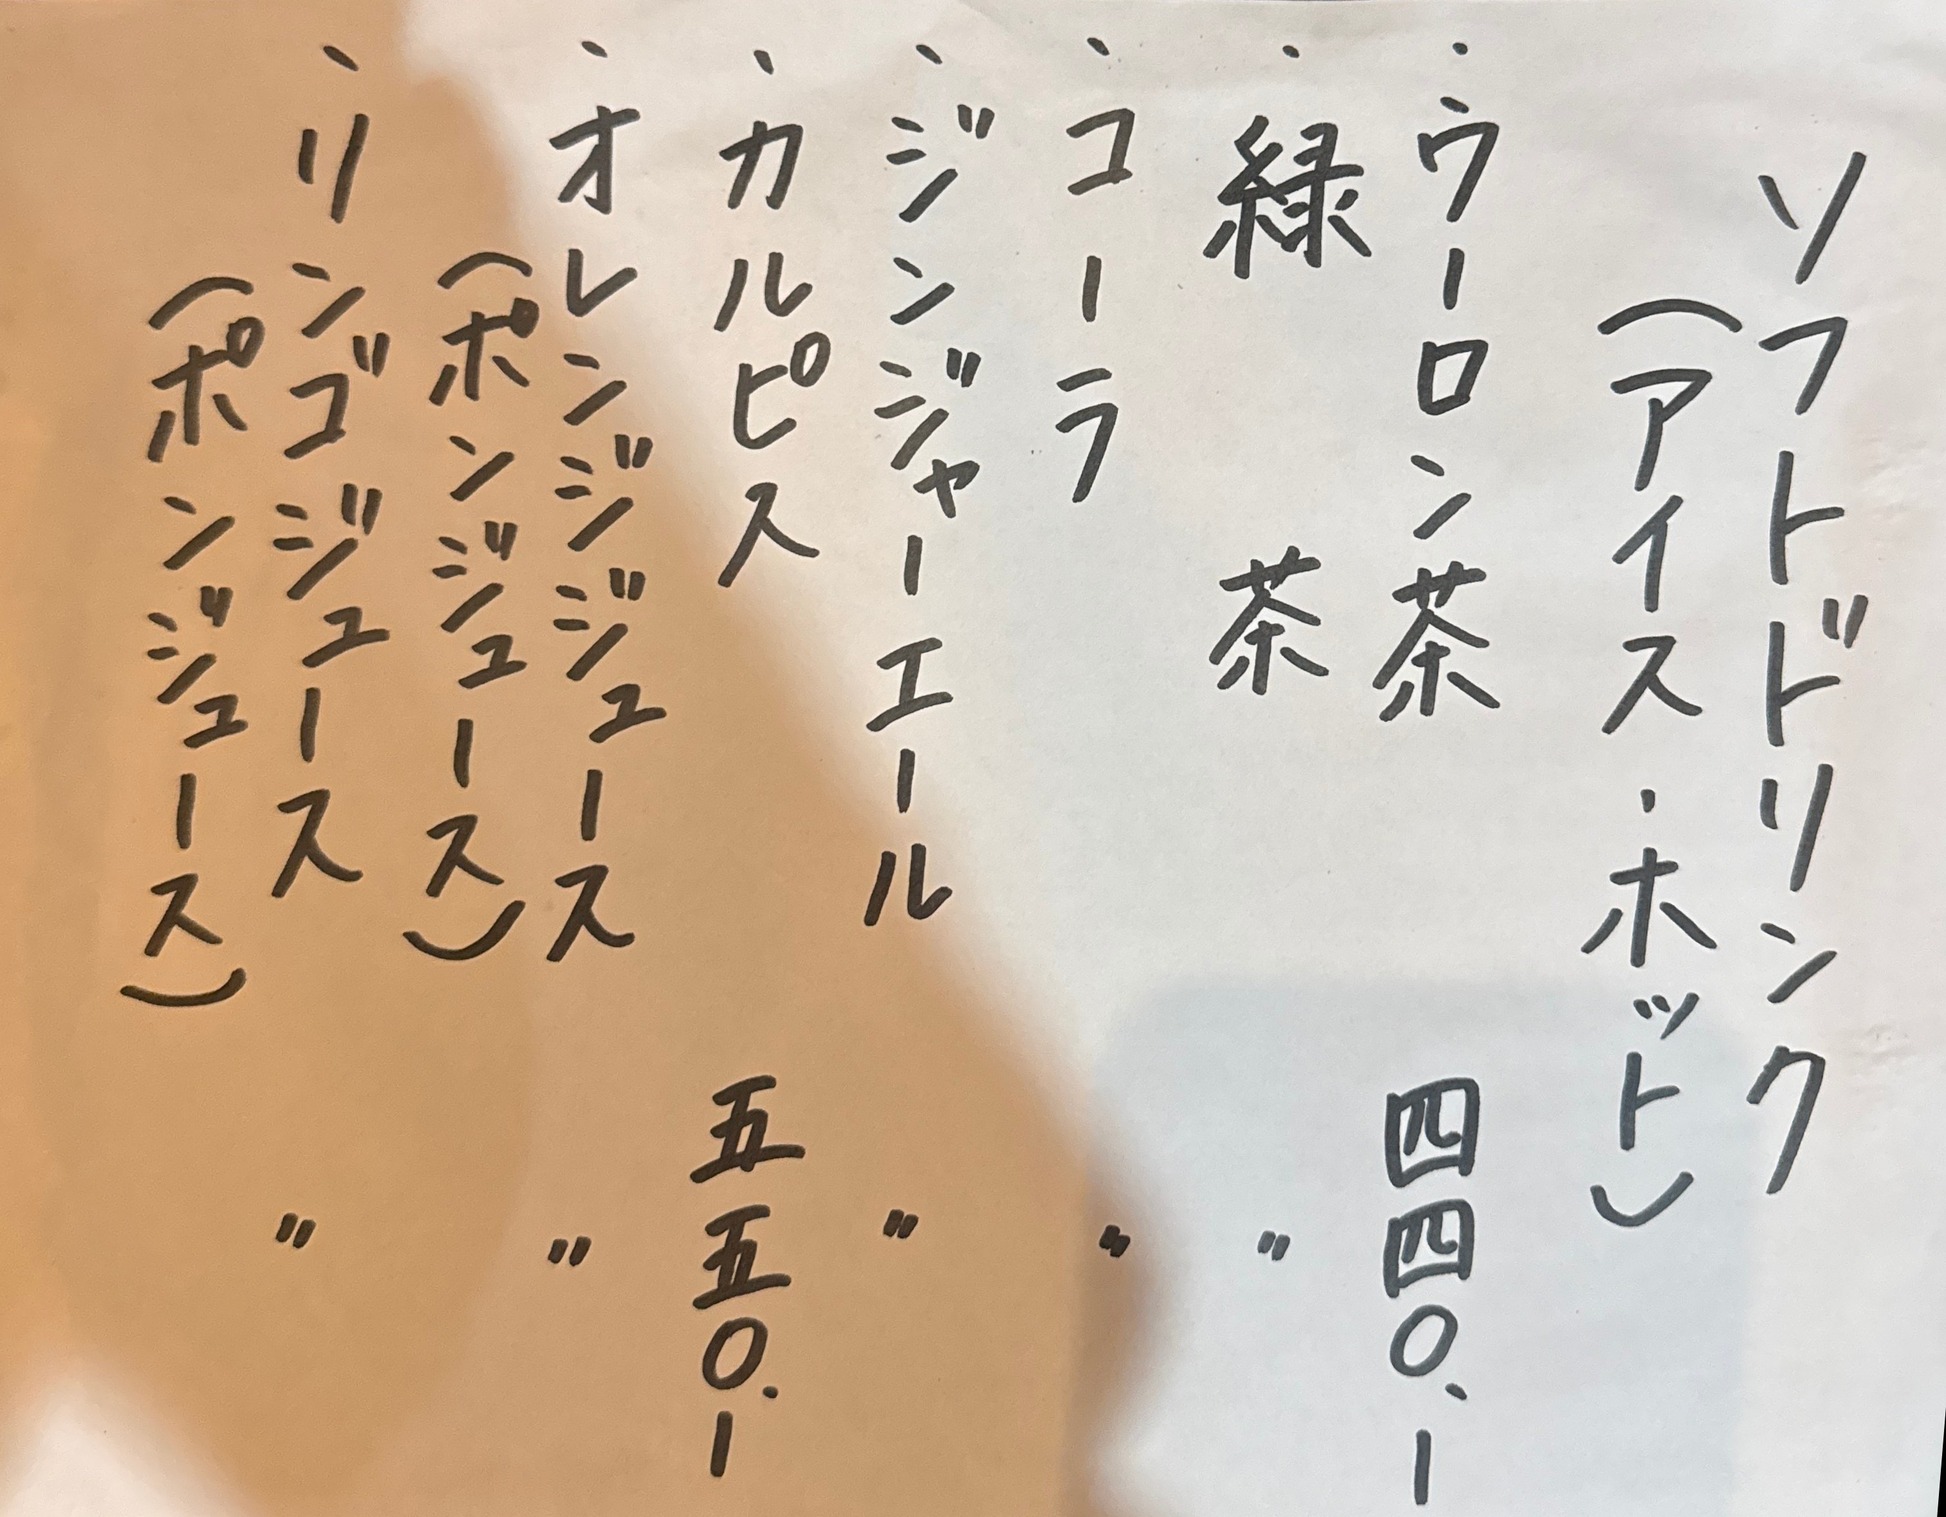 ソフトドリンク
（アイス・ホット）
・ウーロン茶 四四〇.ー
・緑茶 〃
・コーラ 〃
・ジンジャーエール 〃
・カルピス 五五〇.ー
・オレンジジュース 〃
（ポンジュース）
・リンゴジュース 〃
（ポンジュース）